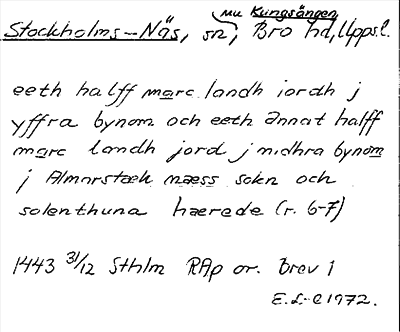 nu Kungsängen
Stockholms-Näs, sn, Bro hd, Uppsl.
eeth halff marc landh iordh j
yffra bynom och eeth annat halff
marc landh jord j nidhra bynom
j Almarstæk næss sokn och
solenthuna hærede (r. 6-7)
1443 31/12 Sthlm RAp or. brev 1
E.L-e 1972.